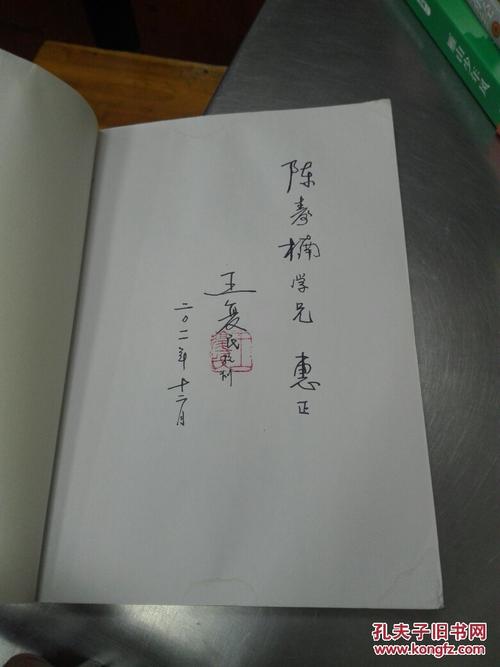 陈寿楠学兄 惠正
王复民
二〇一一年十二月
孔夫子旧书网
www.kongfz.com